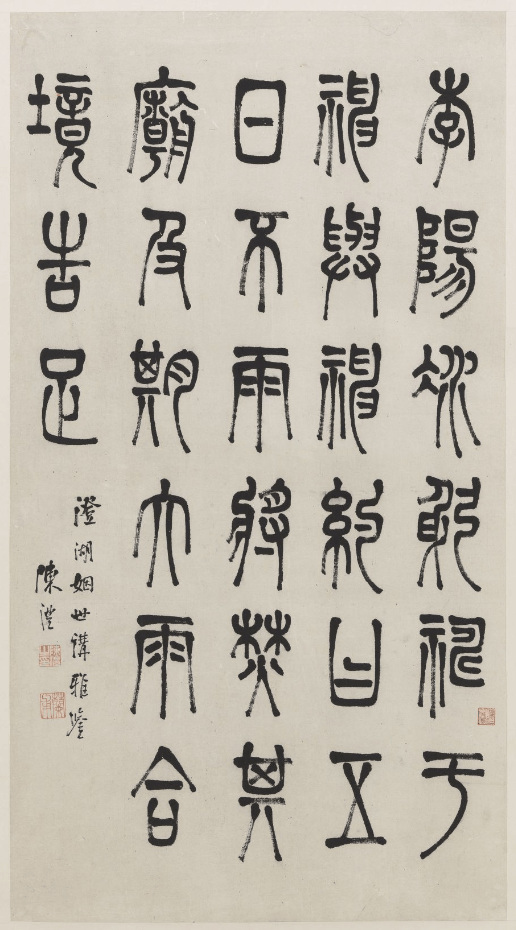 李陽冰躬祈于
神與神約曰五
日不雨將焚其
廟及期大雨合
境告足
澄湖姻世講雅鑒
陳澧